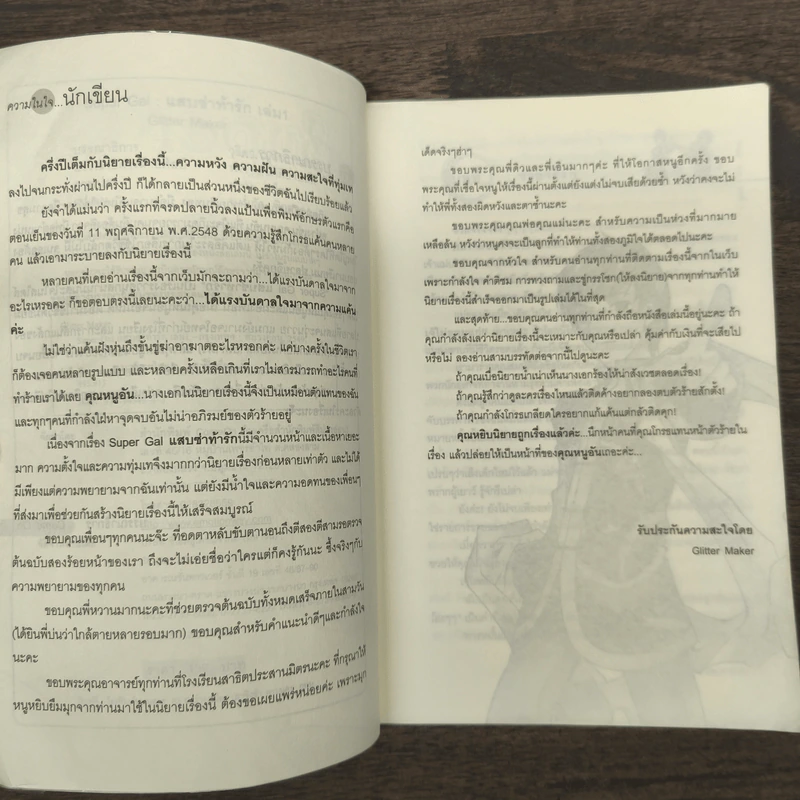 ความในใจ...นักเขียน
ครึ่งปีเต็มกับนิยายเรื่องนี้...ความหวัง ความฝัน ความสะใจที่ทุ่มเท
ลงไปจนกระทั่งผ่านไปครึ่งปี ก็ได้กลายเป็นส่วนหนึ่งของชีวิตฉันไปเรียบร้อยแล้ว
ยังจำได้แม่นว่า ครั้งแรกที่จรดปลายนิ้วลงแป้นเพื่อพิมพ์อักษรตัวแรกคือ
ตอนเย็นของวันที่ 11 พฤศจิกายน พ.ศ.2548 ด้วยความรู้สึกโกรธแค้นคนหลาย
คน แล้วเอามาระบายลงกับนิยายเรื่องนี้
หลายคนที่เคยอ่านเรื่องนี้จากเว็บมักจะถามว่า...ได้แรงบันดาลใจมาจาก
อะไรเหรอคะ ก็ขอตอบตรงนี้เลยนะคะว่า...ได้แรงบันดาลใจมาจากความแค้น
ค่ะ
ไม่ใช่ว่าแค้นฝังหุ่นถึงขั้นขู่ฆ่าอาฆาตอะไรหรอกค่ะ แค่บางครั้งในชีวิตเรา
ก็ต้องเจอคนหลายรูปแบบ และหลายครั้งเหลือเกินที่เราไม่สามารถทำอะไรคนที่
ทำร้ายเราได้เลย คุณหนูอัน...นางเอกในนิยายเรื่องนี้จึงเป็นเหมือนตัวแทนของฉัน
และทุกๆคนที่กำลังใฝ่หาจุดจบอันไม่น่าอภิรมย์ของตัวร้ายอยู่
เนื่องจากเรื่อง Super Gal แสบซ่าท้ารักนี้มีจำนวนหน้าและเนื้อหาเยอะ
มาก ความตั้งใจและความทุ่มเทจึงมากกว่านิยายเรื่องก่อนหลายเท่าตัว และไม่ได้
มีเพียงแต่ความพยายามจากฉันเท่านั้น แต่ยังมีน้ำใจและความอดทนของเพื่อนๆ
ที่ส่งมาเพื่อช่วยกันสร้างนิยายเรื่องนี้ให้เสร็จสมบูรณ์
ขอบคุณเพื่อนๆทุกคนนะจ๊ะ ที่อดตาหลับขับตานอนถึงตีสองตีสามรอตรวจ
ต้นฉบับสองร้อยหน้าของเรา ถึงจะไม่เอ่ยชื่อว่าใครแต่ก็คงรู้กันนะ ซึ้งจริงๆกับ
ความพยายามของทุกคน
ขอบคุณพี่หวานมากนะคะที่ช่วยตรวจต้นฉบับทั้งหมดเสร็จภายในสามวัน
(ได้ยินพี่บ่นว่าใกล้ตายหลายรอบมาก) ขอบคุณสำหรับคำแนะนำดีๆและกำลังใจ
นะคะ
ขอบพระคุณอาจารย์ทุกท่านที่โรงเรียนสาธิตประสานมิตรนะคะ ที่กรุณาให้
หนูหยิบยืมมุกจากท่านมาใช้ในนิยายเรื่องนี้ ต้องขอเผยแพร่หน่อยค่ะ เพราะมุก
เด็ดจริงๆฮ่าๆ
ขอบพระคุณพี่ดิวและพี่เอินมากๆค่ะ ที่ให้โอกาสหนูอีกครั้ง ขอบ
พระคุณที่เชื่อใจหนูให้เรื่องนี้ผ่านตั้งแต่ยังแต่งไม่จบเสียด้วยซ้ำ หวังว่าคงจะไม่
ทำให้พี่ทั้งสองผิดหวังและตาช้ำนะคะ
ขอบพระคุณคุณพ่อคุณแม่นะคะ สำหรับความเป็นห่วงที่มากมาย
เหลือล้น หวังว่าหนูคงจะเป็นลูกที่ทำให้ท่านทั้งสองภูมิใจได้ตลอดไปนะคะ
ขอบคุณจากหัวใจ สำหรับคนอ่านทุกท่านที่ติดตามเรื่องนี้จากในเว็บ
เพราะกำลังใจ คำติชม การทวงถามและขู่กรรโชก(ให้ลงนิยาย)จากทุกท่านทำให้
นิยายเรื่องนี้สำเร็จออกมาเป็นรูปเล่มได้ในที่สุด
และสุดท้าย...ขอบคุณคนอ่านทุกท่านที่กำลังถือหนังสือเล่มนี้อยู่นะคะ ถ้า
คุณกำลังลังเลว่านิยายเรื่องนี้จะเหมาะกับคุณหรือเปล่า คุ้มค่ากับเงินที่จะเสียไป
หรือไม่ ลองอ่านสามบรรทัดต่อจากนี้ไปดูนะคะ
ถ้าคุณเบื่อนิยายน้ำเน่าเห็นนางเอกร้องไห้น่าสังเวชตลอดเรื่อง!
ถ้าคุณรู้สึกว่าดูละครเรื่องไหนแล้วติดค้างอยากลองตบตัวร้ายสักตั้ง!
ถ้าคุณกำลังโกรธเกลียดใครอยากแก้แค้นแต่กลัวติดคุก!
คุณหยิบนิยายถูกเรื่องแล้วค่ะ...นึกหน้าคนที่คุณโกรธแทนหน้าตัวร้ายใน
เรื่อง แล้วปล่อยให้เป็นหน้าที่ของคุณหนูอันเถอะค่ะ...
รับประกันความสะใจโดย
Glitter Maker